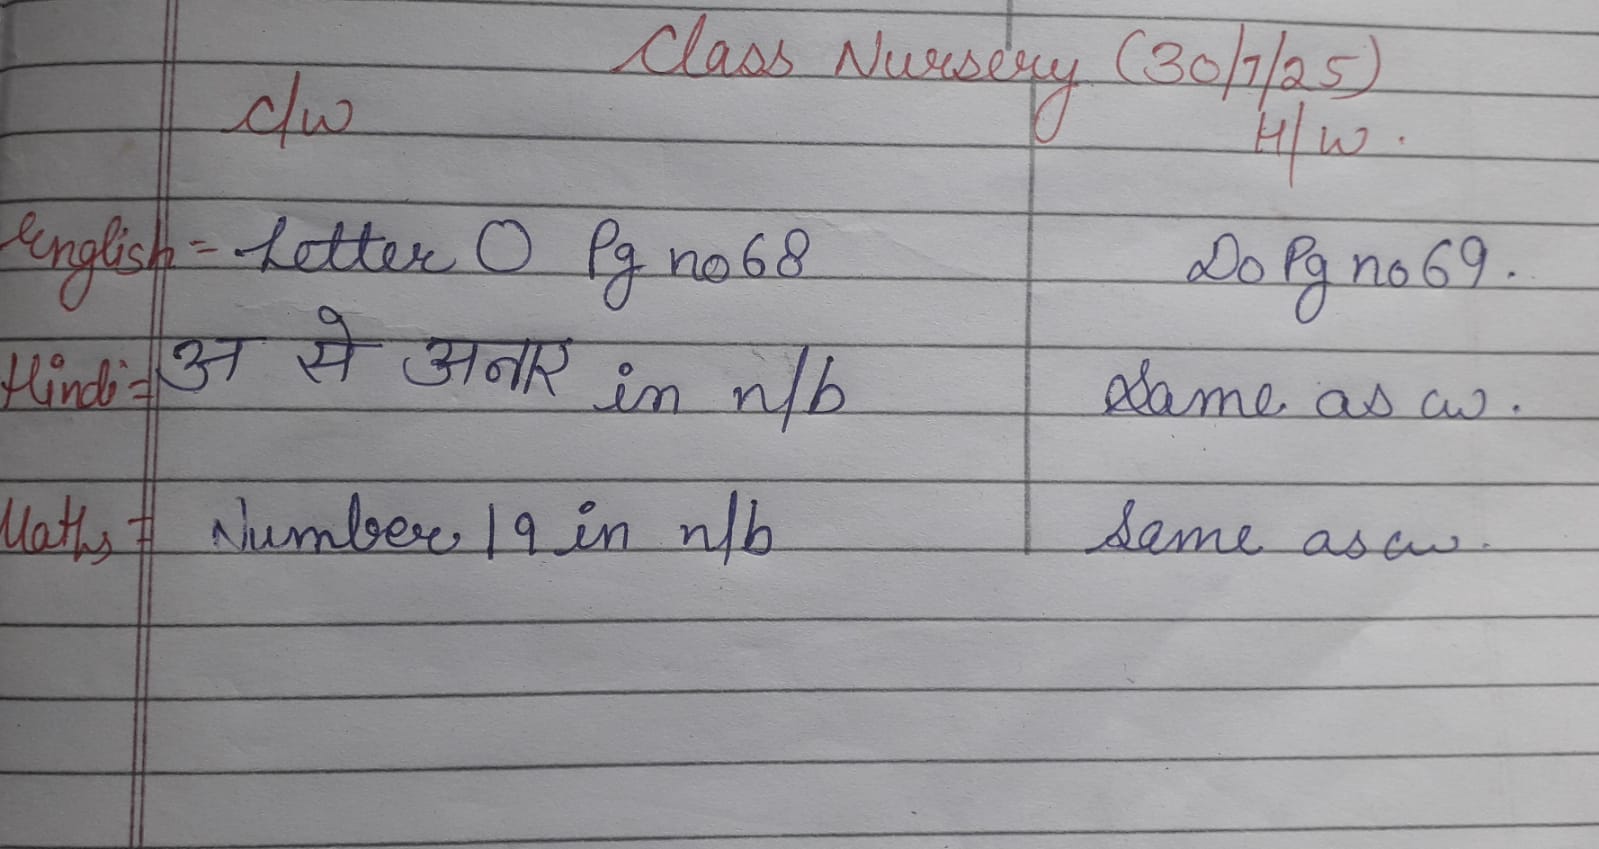 Class Nursery (30/7/25)
C/W H/W.
English = Letter O Pg no 68 Do Pg no 69.
Hindi = अ से अनार in n/b Same as cw.
Maths = Number 19 in n/b Same as cw.